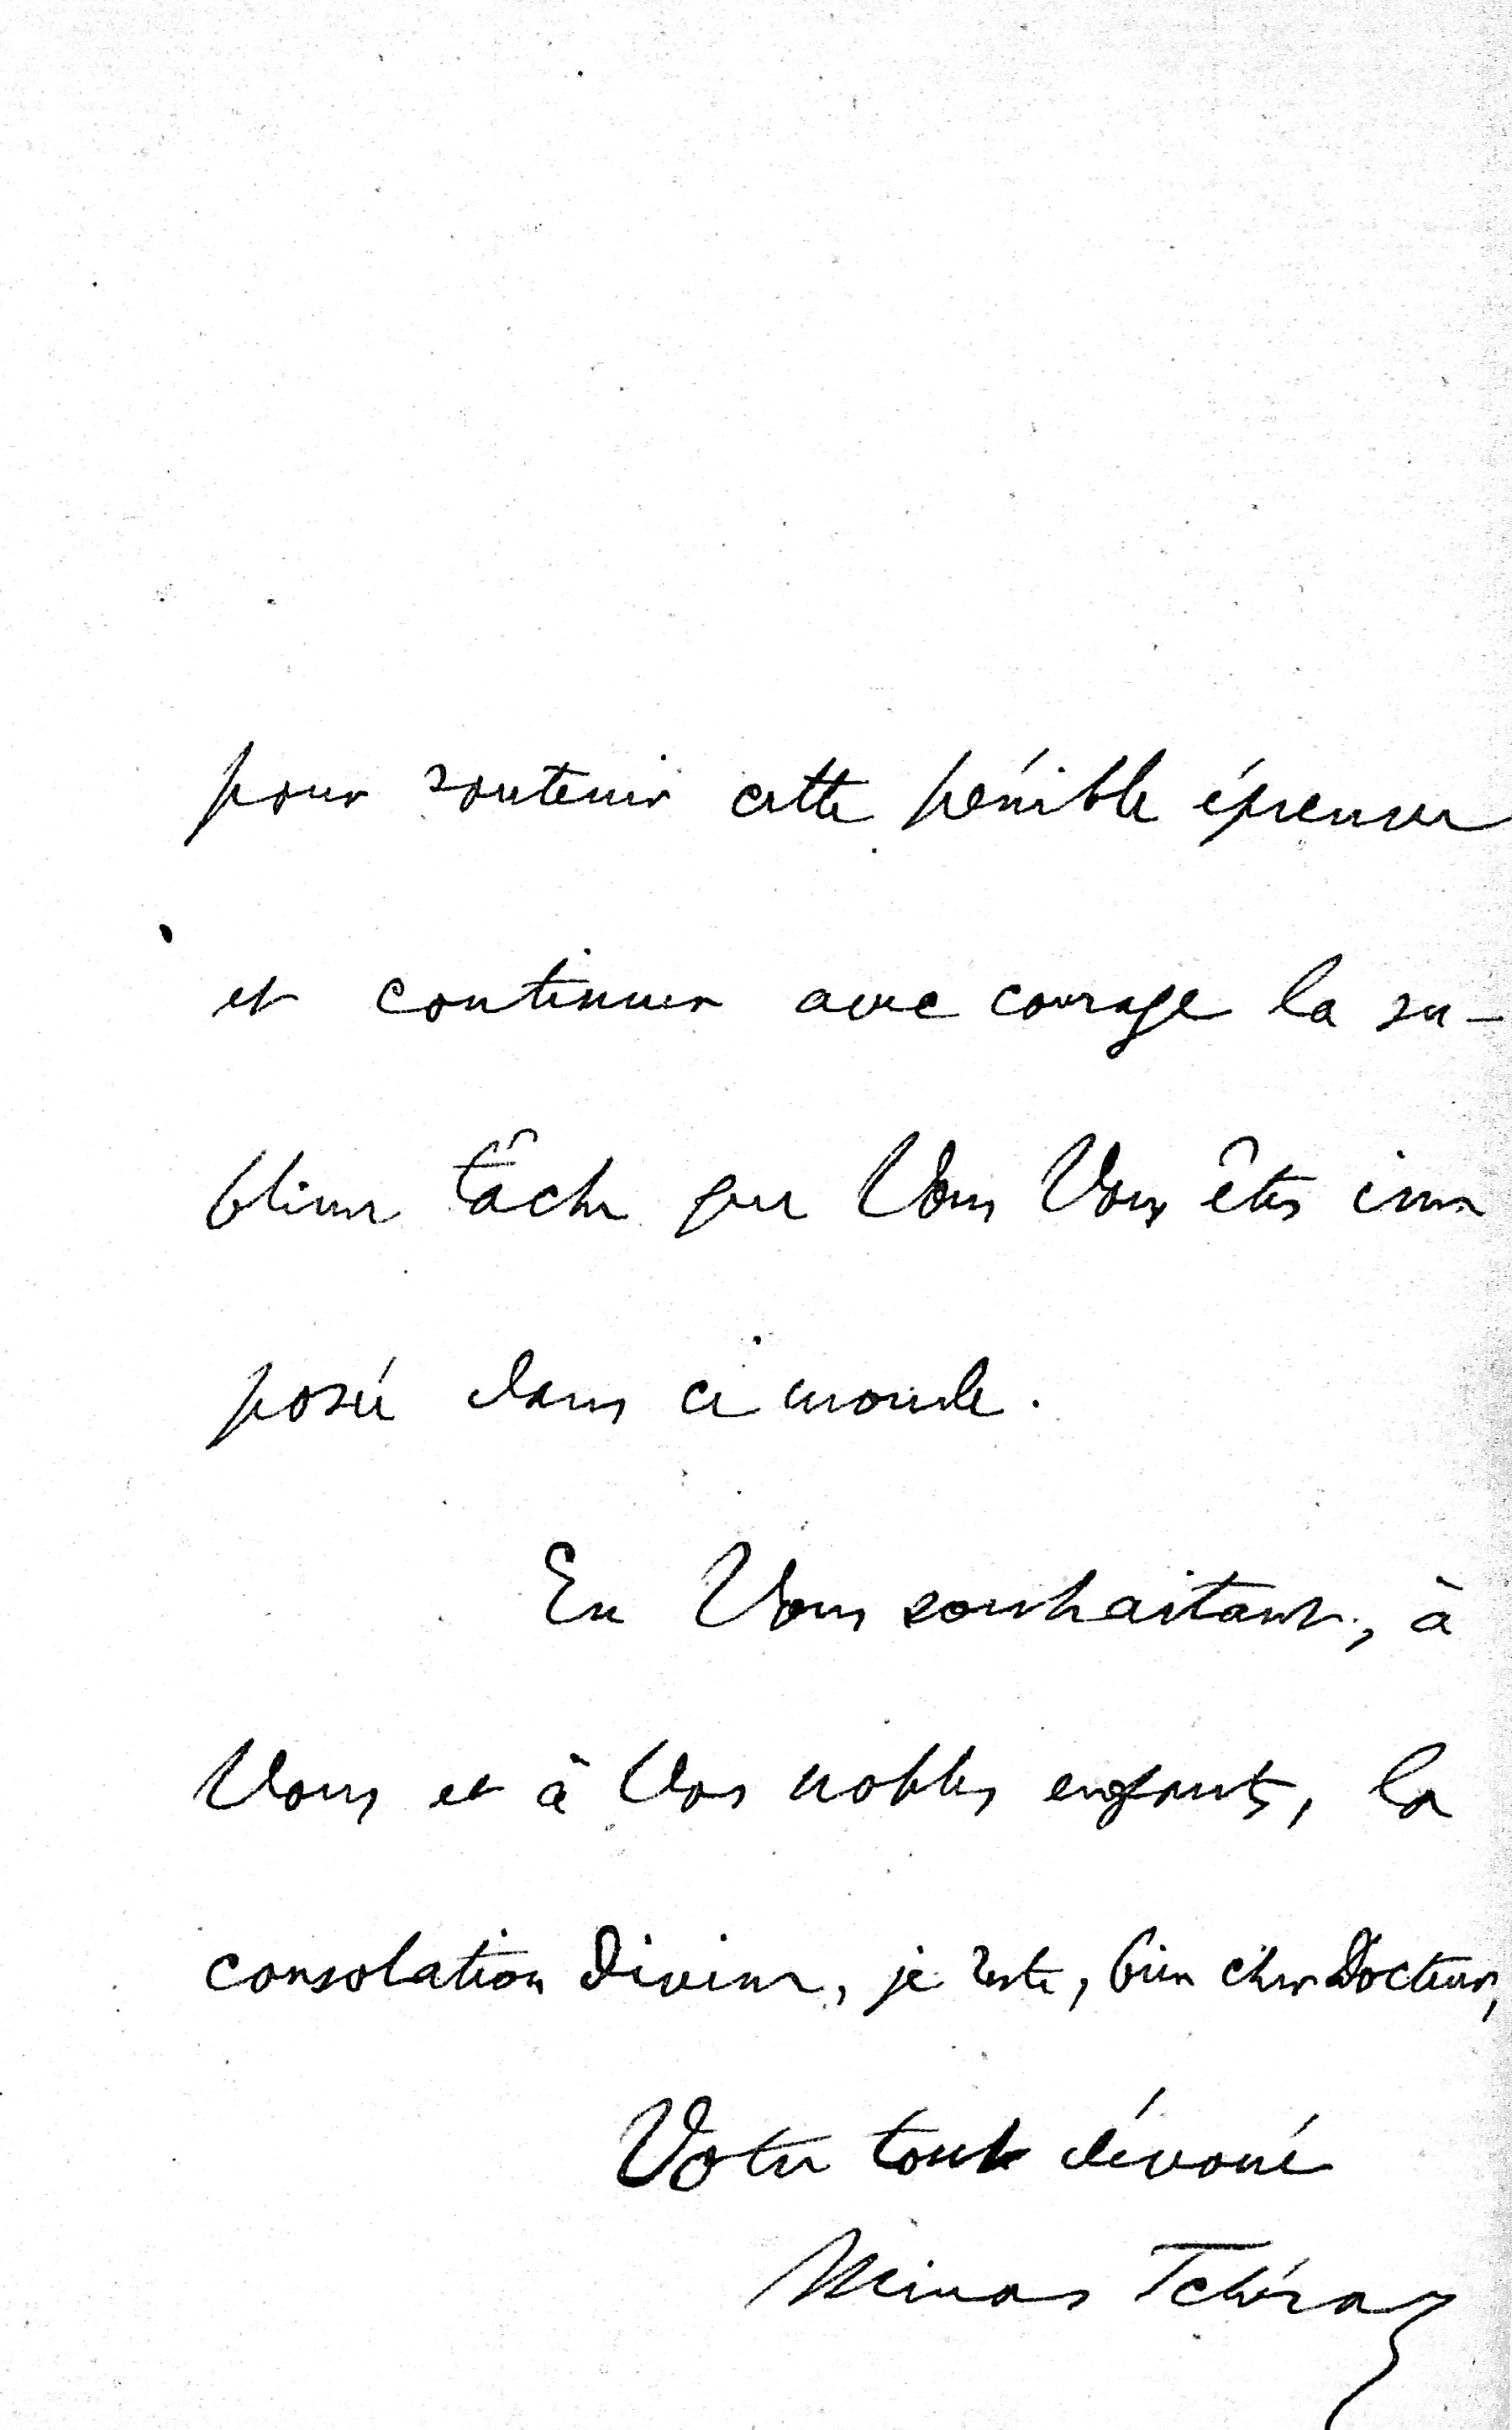 pour soutenir cette pénible épreuve
et continuer avec courage la su-
blime tâche que Vous Vous êtes im
posée dans ce monde.
En Vous souhaitant, à
Vous et à Vos nobles enfants, la
consolation divine, je reste, bien cher Docteur,
Votre tout dévoué
Minas Tchéraz